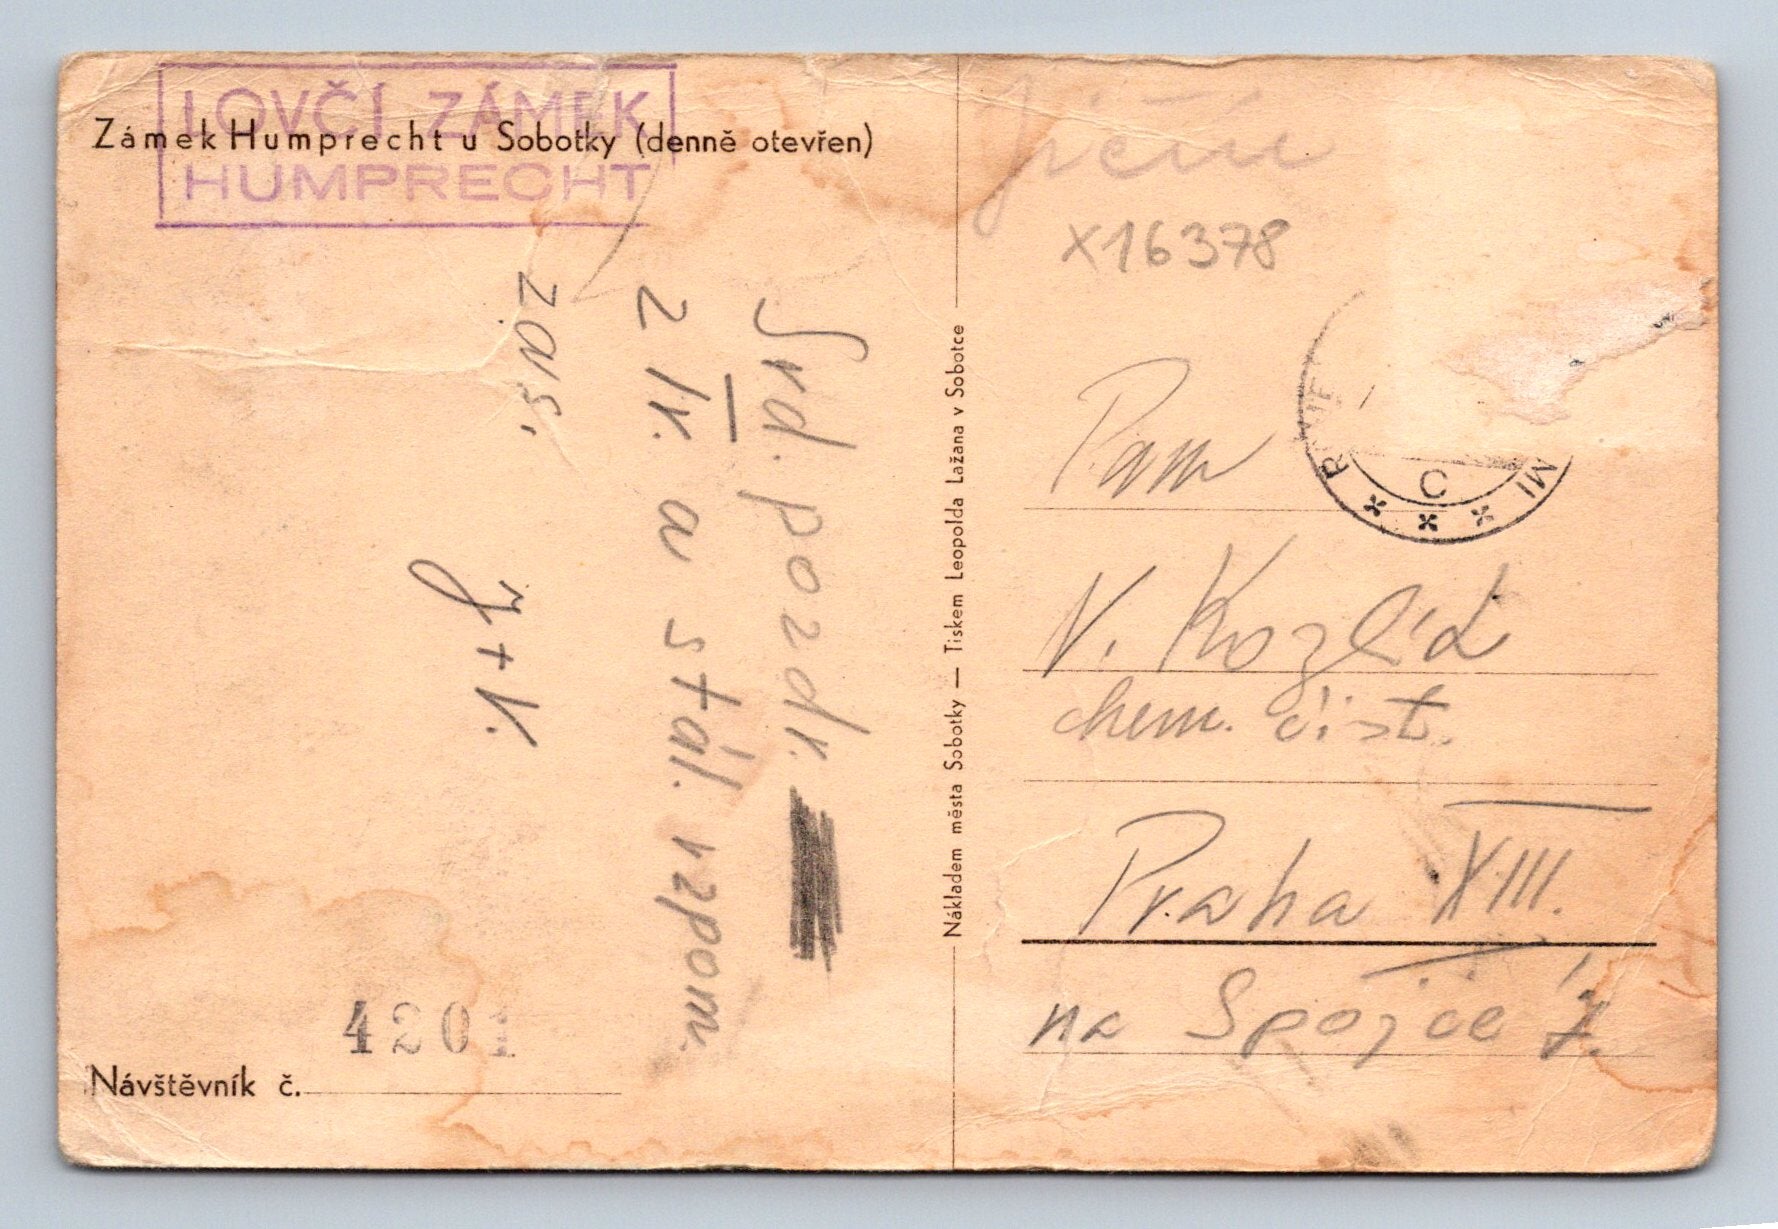 LOVČÍ ZÁMEK
HUMPRECHT
Zámek Humprecht u Sobotky (denně otevřen)
Srd. pozdr.
2 a stál. vzpom.
zas.
J + V.
4201
Návštěvník č.
Nákladem města Sobotky — Tiskem Leopolda Lažana v Sobotce
Jičín
X16378
C
Pan
V. Kozlík
chem. čist.
Praha XIII.
na Spojce 7.